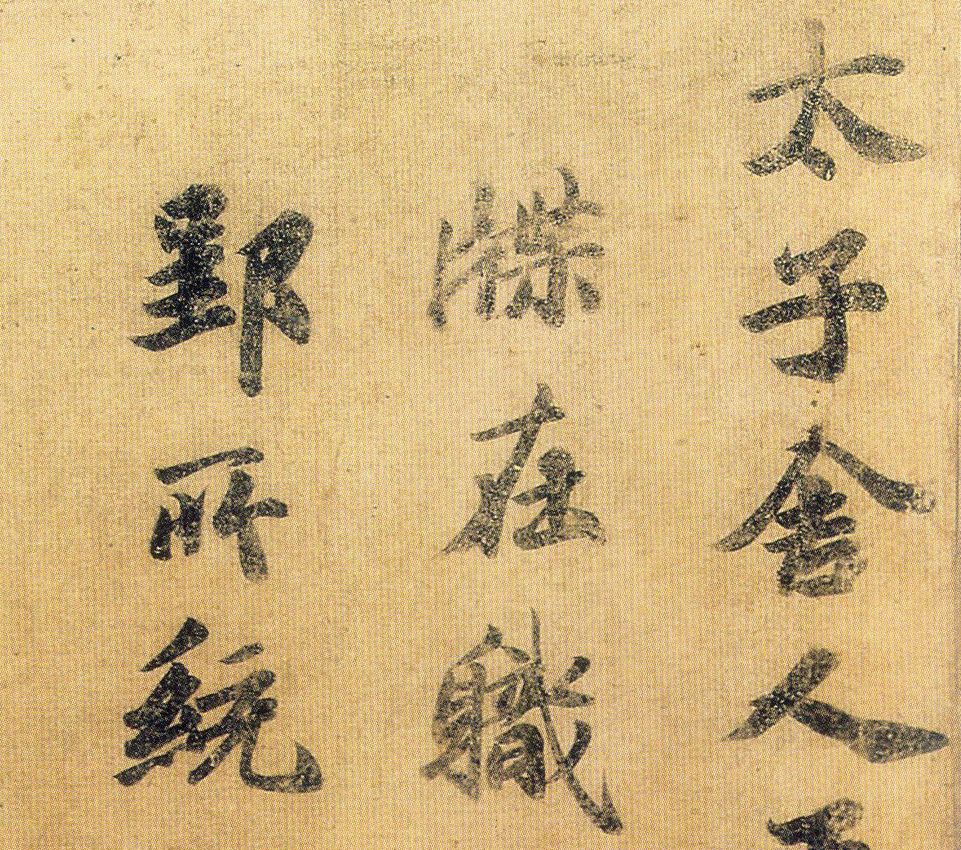 太子舍人
牒在軄
郢所統